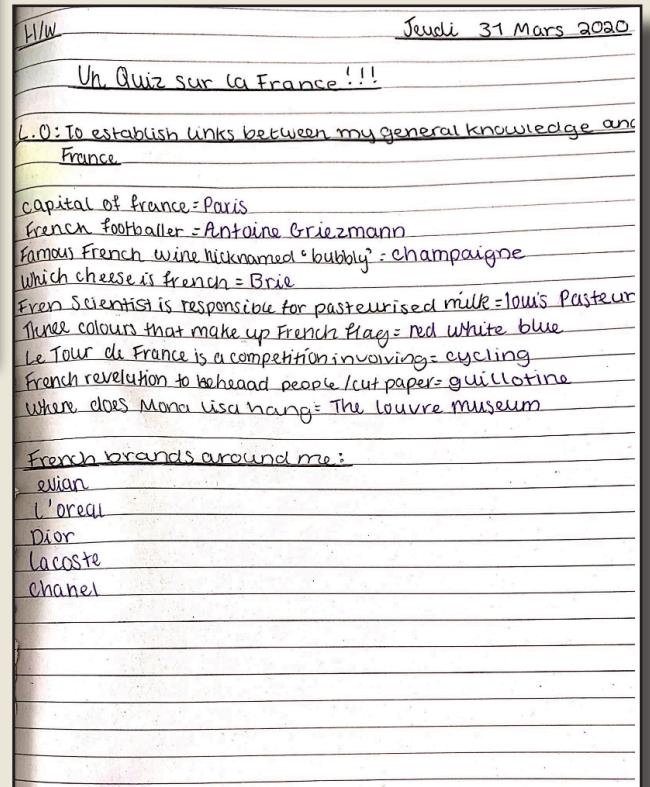 H/W
Jeudi 31 Mars 2020
Un Quiz sur la France!!!
L.O: To establish links between my general knowledge and
France
capital of france = Paris
French footballer = Antoine Griezmann
Famous French wine nicknamed "bubbly" = champaigne
Which cheese is french = Brie
Fren Scientist is responsible for pasteurised milk = louis Pasteur
Three colours that make up French flag = red white blue
Le Tour de France is a competition involving = cycling
French revelution to beheaad people / cut paper = guillotine
Where does Mona Lisa hang = The louvre museum
French brands around me:
evian
L'oreal
Dior
Lacoste
Chanel